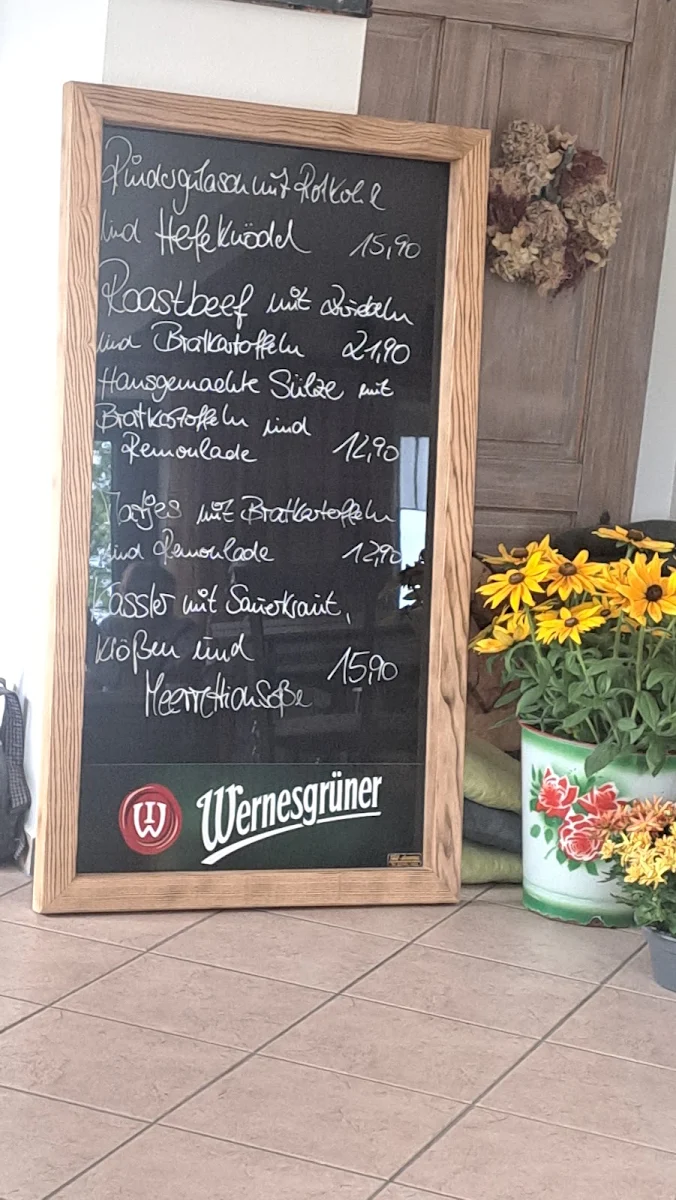 Rindergulasch mit Rotkohl
und Hefeknödel 15,90
Roastbeef mit Zwiebeln
und Bratkartoffeln 21,90
Hausgemachte Sülze mit
Bratkartoffeln und
Remoulade 12,90
Matjes mit Bratkartoffeln
und Remoulade 12,90
Kassler mit Sauerkraut,
Klößen und
Meerrettichsoße 15,90
W Wernesgrüner